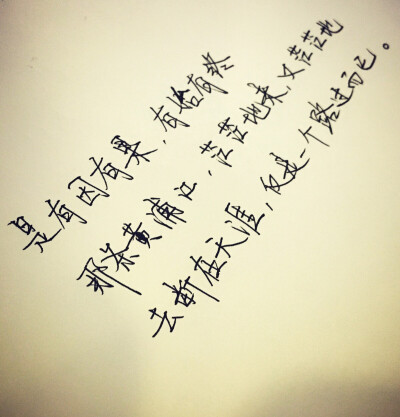 是有因有果，有始有终
那条黄浦江，茫茫地来，又茫茫地
去断在天涯，仅是一个路过而已。